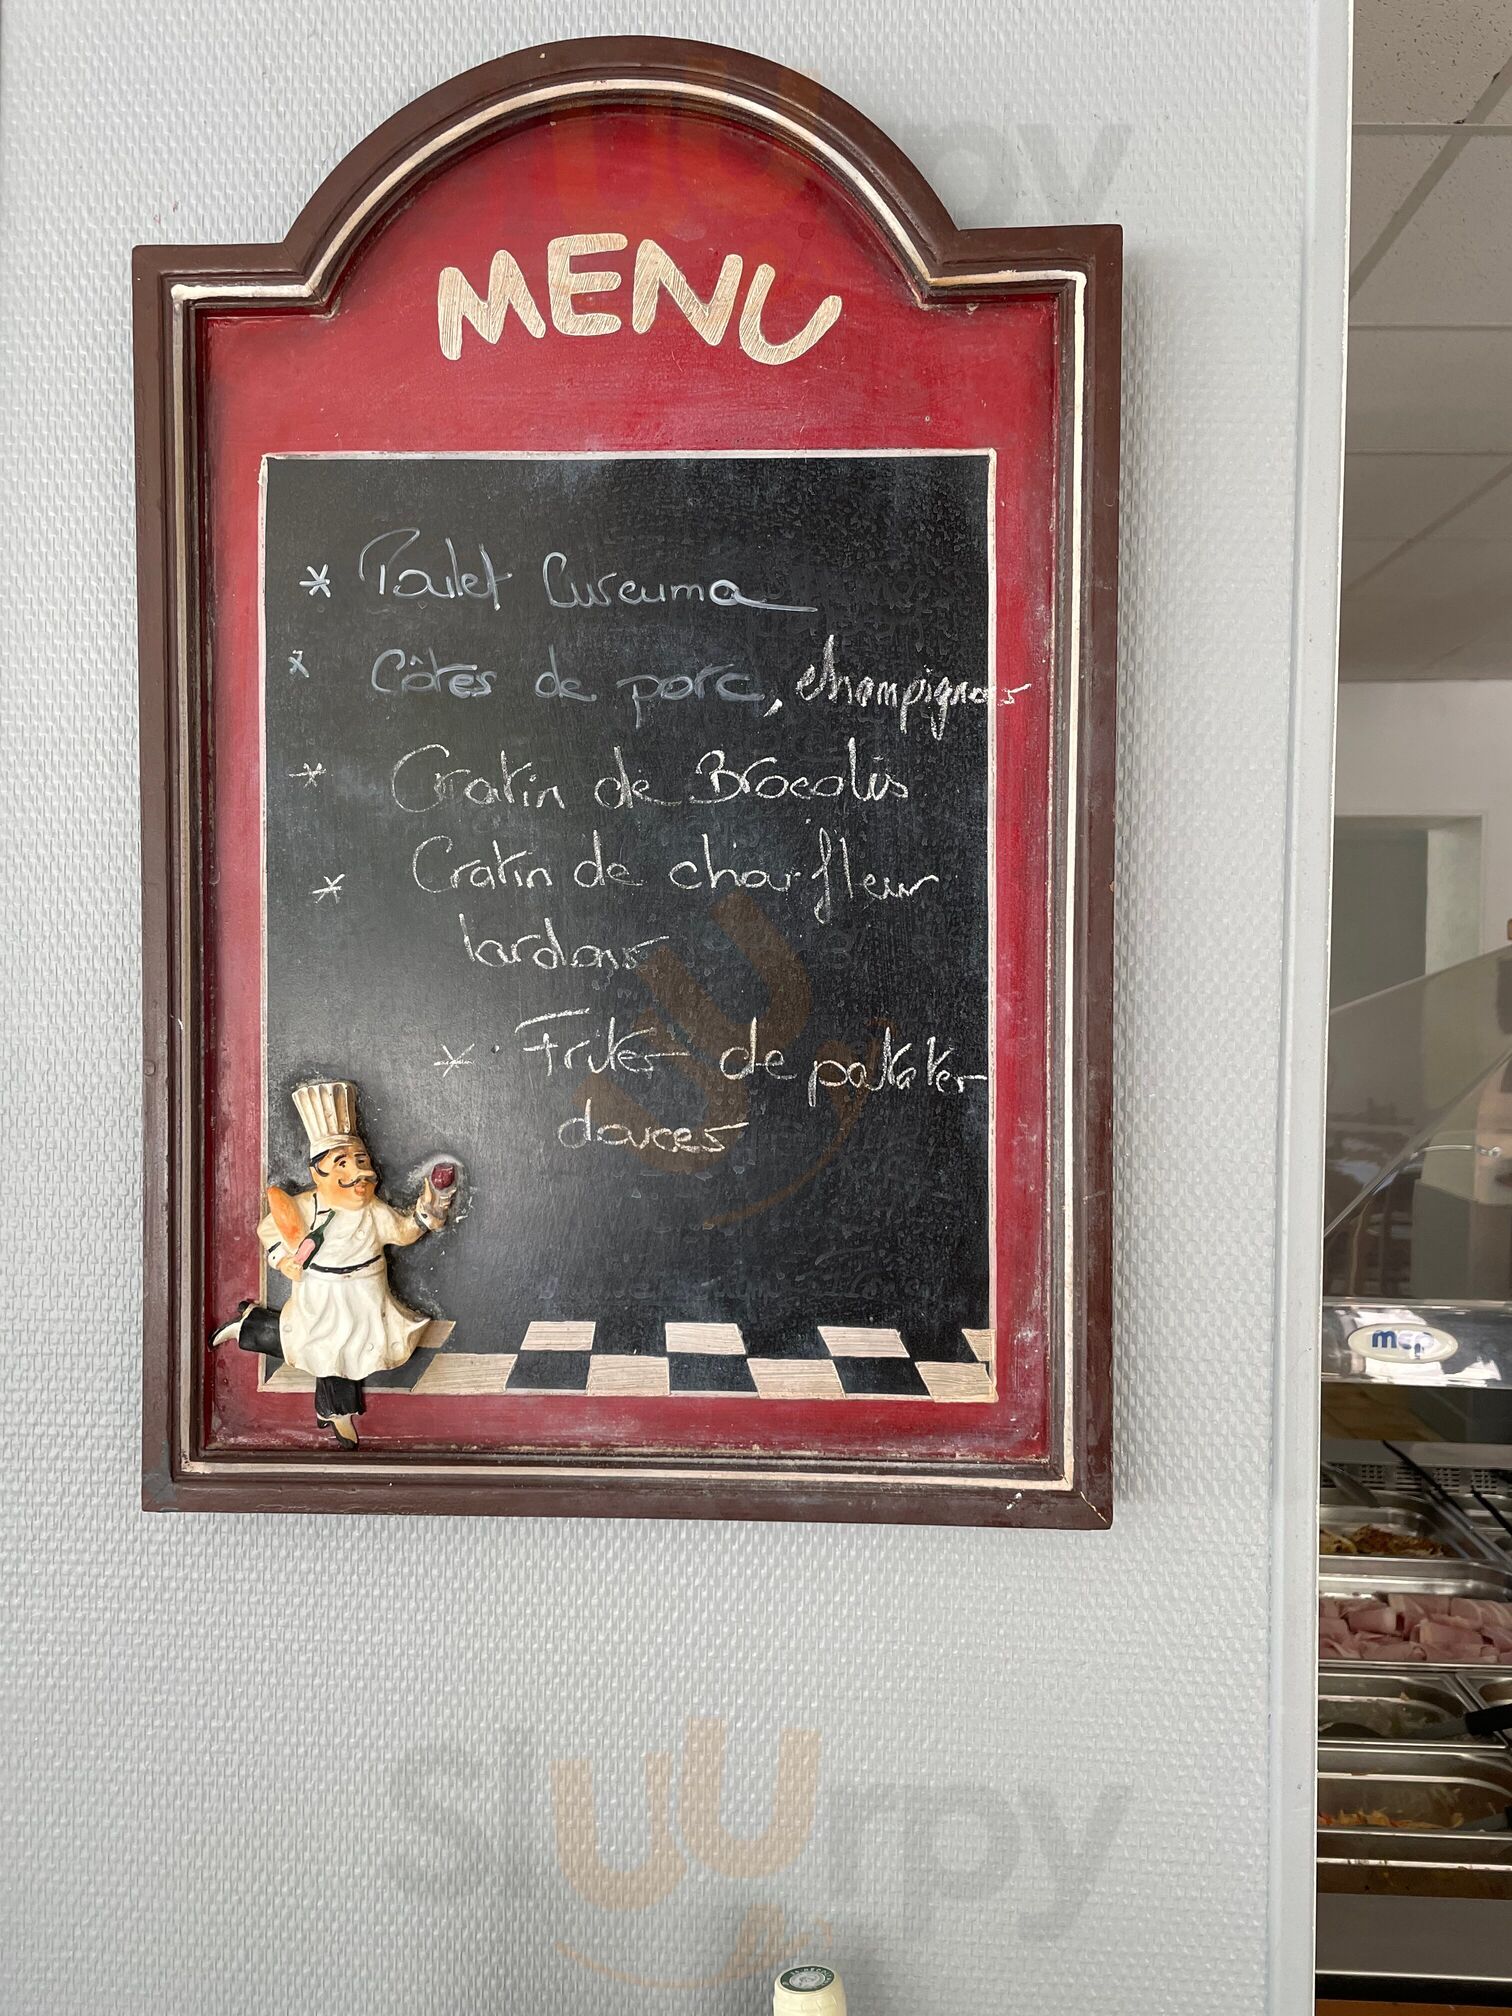 MENU
* Poulet Curcuma
* Côtes de porc, champignons
* Gratin de Brocolis
* Gratin de chou fleur
lardons
* Frites de patates
douces
mcp
suurpy